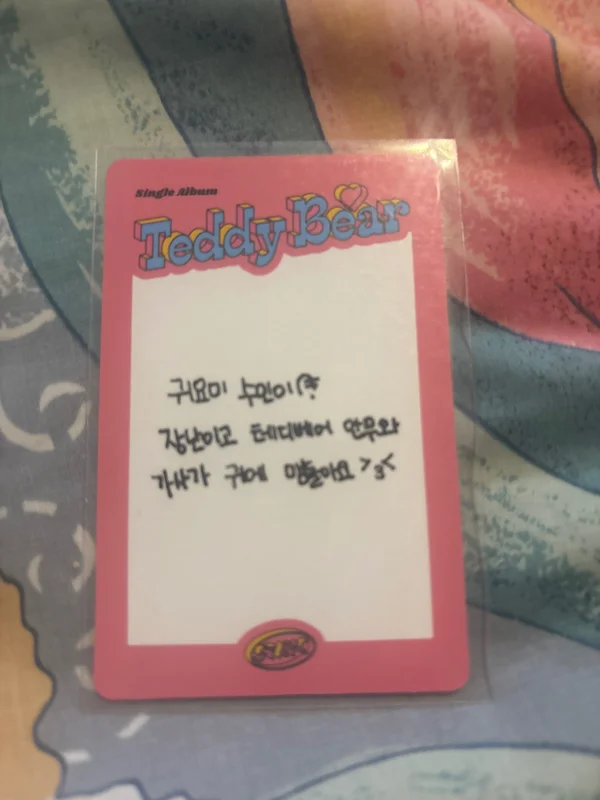 Single Album
Teddy Bear
귀요미 수민이
장난이고 테디베어 안무와
가사가 귀에 맴돌아요 >3<